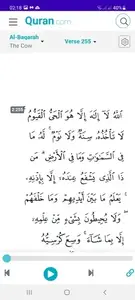 02:18
94%
Quran.com
Al-Baqarah
The Cow
Verse 255
2:255
ٱللَّهُ لَآ إِلَـٰهَ إِلَّا هُوَ ٱلْحَىُّ ٱلْقَيُّومُ ۚ
لَا تَأْخُذُهُۥ سِنَةٌ وَلَا نَوْمٌ ۚ لَّهُۥ مَا
فِى ٱلسَّمَـٰوَٰتِ وَمَا فِى ٱلْأَرْضِ ۗ مَن
ذَا ٱلَّذِى يَشْفَعُ عِندَهُۥٓ إِلَّا بِإِذْنِهِۦ
ۚ يَعْلَمُ مَا بَيْنَ أَيْدِيهِمْ وَمَا خَلْفَهُمْ ۖ
وَلَا يُحِيطُونَ بِشَىْءٍ مِّنْ عِلْمِهِۦٓ
إِلَّا بِمَا شَآءَ ۚ وَسِعَ كُرْسِيُّهُ